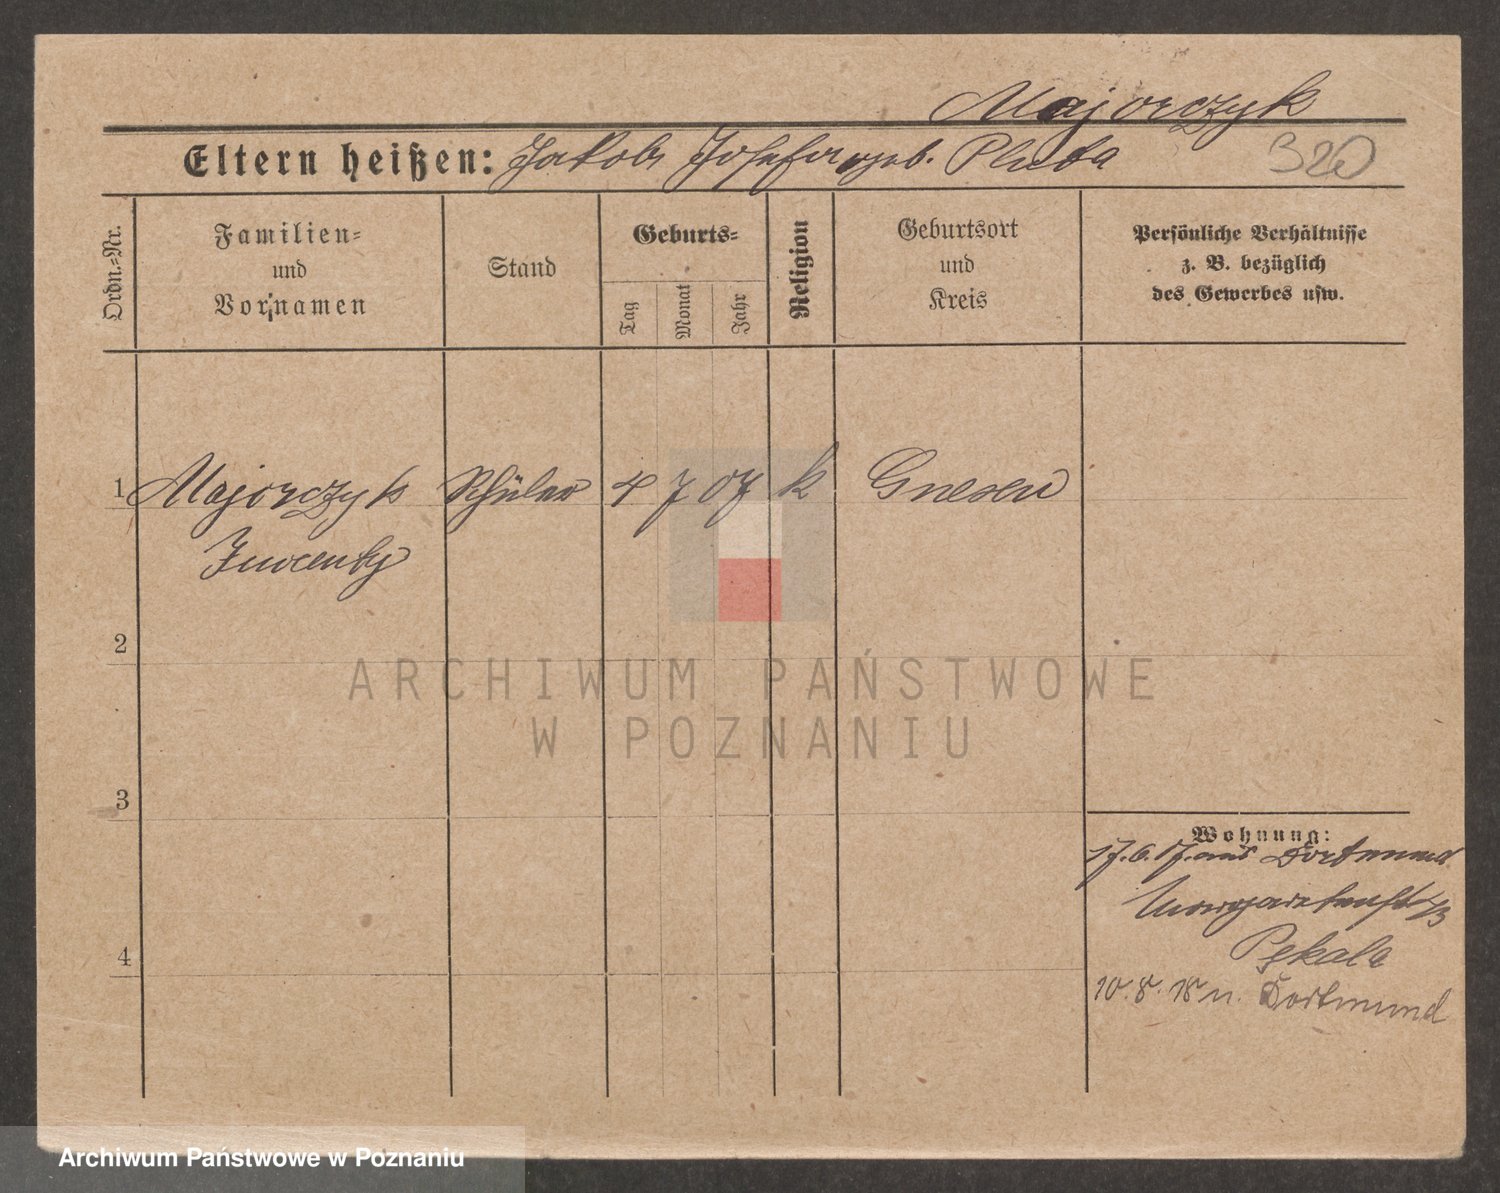 Majorczyk
Eltern heißen: Jakob Josefa geb. Pluta 320
Ordn.=Nr.
Familien=
und
Vornamen
Stand
Geburts=
Tag
Monat
Jahr
Religion
Geburtsort
und
Kreis
Persönliche Verhältnisse
z. B. bezüglich
des Gewerbes usw.
1 Majorczyk Schüler 4 7 07 k Gnesen
Inocenty
2
3
4
Wohnung:
17.6.17. aus Dortmund
Pękala
10.8.18 n. Dortmund
ARCHIWUM PAŃSTWOWE
W POZNANIU
Archiwum Państwowe w Poznaniu